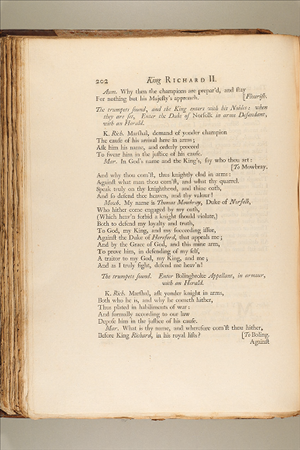 202 King RICHARD II.
Aum. Why then the champions are prepar'd, and stay
For nothing but his Majesty's approach. [Flourish.
The trumpets sound, and the King enters with his Nobles: when
they are set, Enter the Duke of Norfolk in arms Defendant,
with an Herald.
K. Rich. Marshal, demand of yonder champion
The cause of his arrival here in arms;
Ask him his name, and orderly proceed
To swear him in the justice of his cause.
Mar. In God's name and the King's, say who thou art:
[To Mowbray.
And why thou com'st, thus knightly clad in arms:
Against what man thou com'st, and what thy quarrel.
Speak truly on thy knighthood, and thine oath,
And so defend thee heaven, and thy valour!
Mowb. My name is Thomas Mowbray, Duke of Norfolk,
Who hither come engaged by my oath,
(Which heav'n forbid a knight should violate,)
Both to defend my loyalty and truth,
To God, my King, and my succeeding issue,
Against the Duke of Hereford, that appeals me;
And by the Grace of God, and this mine arm,
To prove him, in defending of my self,
A traitor to my God, my King, and me;
And as I truly fight, defend me heav'n!
The trumpets sound. Enter Bolingbroke Appellant, in armour,
with an Herald.
K. Rich. Marshal, ask yonder knight in arms,
Both who he is, and why he cometh hither,
Thus plated in habiliments of war:
And formally according to our law
Depose him in the justice of his cause.
Mar. What is thy name, and wherefore com'st thou hither,
Before King Richard, in his royal lists? [To Boling.
Against